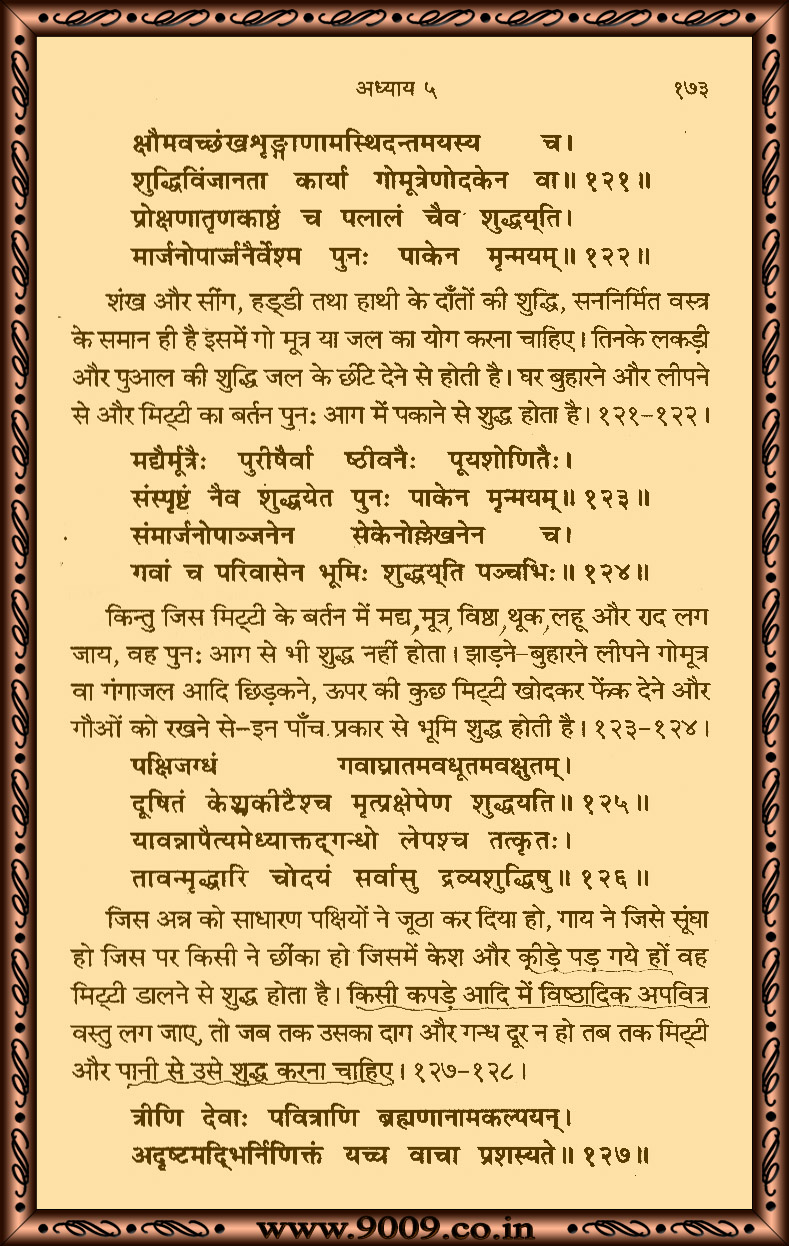 अध्याय ५ १७३
क्षौमवच्छंखशृङ्गाणामस्थिदन्तमयस्य च।
शुद्धिविंजानता कार्या गोमूत्रेणोदकेन वा॥ १२१॥
प्रोक्षणातृणकाष्ठं च पलालं चैव शुद्धय्ति।
मार्जनोपार्ज्जनैर्वेश्म पुनः पाकेन मृन्मयम्॥ १२२॥
शंख और सींग, हड्डी तथा हाथी के दाँतों की शुद्धि, सननिर्मित वस्त्र
के समान ही है इसमें गो मूत्र या जल का योग करना चाहिए। तिनके लकड़ी
और पुआल की शुद्धि जल के छींटे देने से होती है। घर बुहारने और लीपने
से और मिट्टी का बर्तन पुनः आग में पकाने से शुद्ध होता है। १२१-१२२।
मद्यैर्मूत्रैः पुरीषैर्वा ष्ठीवनैः पूयशोणितैः।
संस्पृष्टं नैव शुद्धयेत पुनः पाकेन मृन्मयम्॥ १२३॥
संमार्जनोपाञ्जनेन सेकेनोल्लेखनेन च।
गवां च परिवासेन भूमिः शुद्धय्ति पञ्चभिः॥ १२४॥
किन्तु जिस मिट्टी के बर्तन में मद्य, मूत्र, विष्ठा, थूक, लहू और राद लग
जाय, वह पुनः आग से भी शुद्ध नहीं होता। झाड़ने-बुहारने लीपने गोमूत्र
वा गंगाजल आदि छिड़कने, ऊपर की कुछ मिट्टी खोदकर फेंक देने और
गौओं को रखने से-इन पाँच प्रकार से भूमि शुद्ध होती है। १२३-१२४।
पक्षिजग्धं गवाघ्रातमवधूतमवक्षुतम्।
दूषितं केशकीटैश्च मृत्प्रक्षेपेण शुद्धयति॥ १२५॥
यावन्नापैत्यमेध्याक्तद्गन्धो लेपश्च तत्कृतः।
तावन्मृद्धारि चोदयं सर्वासु द्रव्यशुद्धिषु॥ १२६॥
जिस अन्न को साधारण पक्षियों ने जूठा कर दिया हो, गाय ने जिसे सूंघा
हो जिस पर किसी ने छींका हो जिसमें केश और कीड़े पड़ गये हों वह
मिट्टी डालने से शुद्ध होता है। किसी कपड़े आदि में विष्ठादिक अपवित्र
वस्तु लग जाए, तो जब तक उसका दाग और गन्ध दूर न हो तब तक मिट्टी
और पानी से उसे शुद्ध करना चाहिए। १२७-१२८।
त्रीणि देवाः पवित्राणि ब्रह्मणानामकल्पयन्।
अदृष्टमद्भिर्निणिक्तं यच्च वाचा प्रशस्यते॥ १२७॥
www.9009.co.in